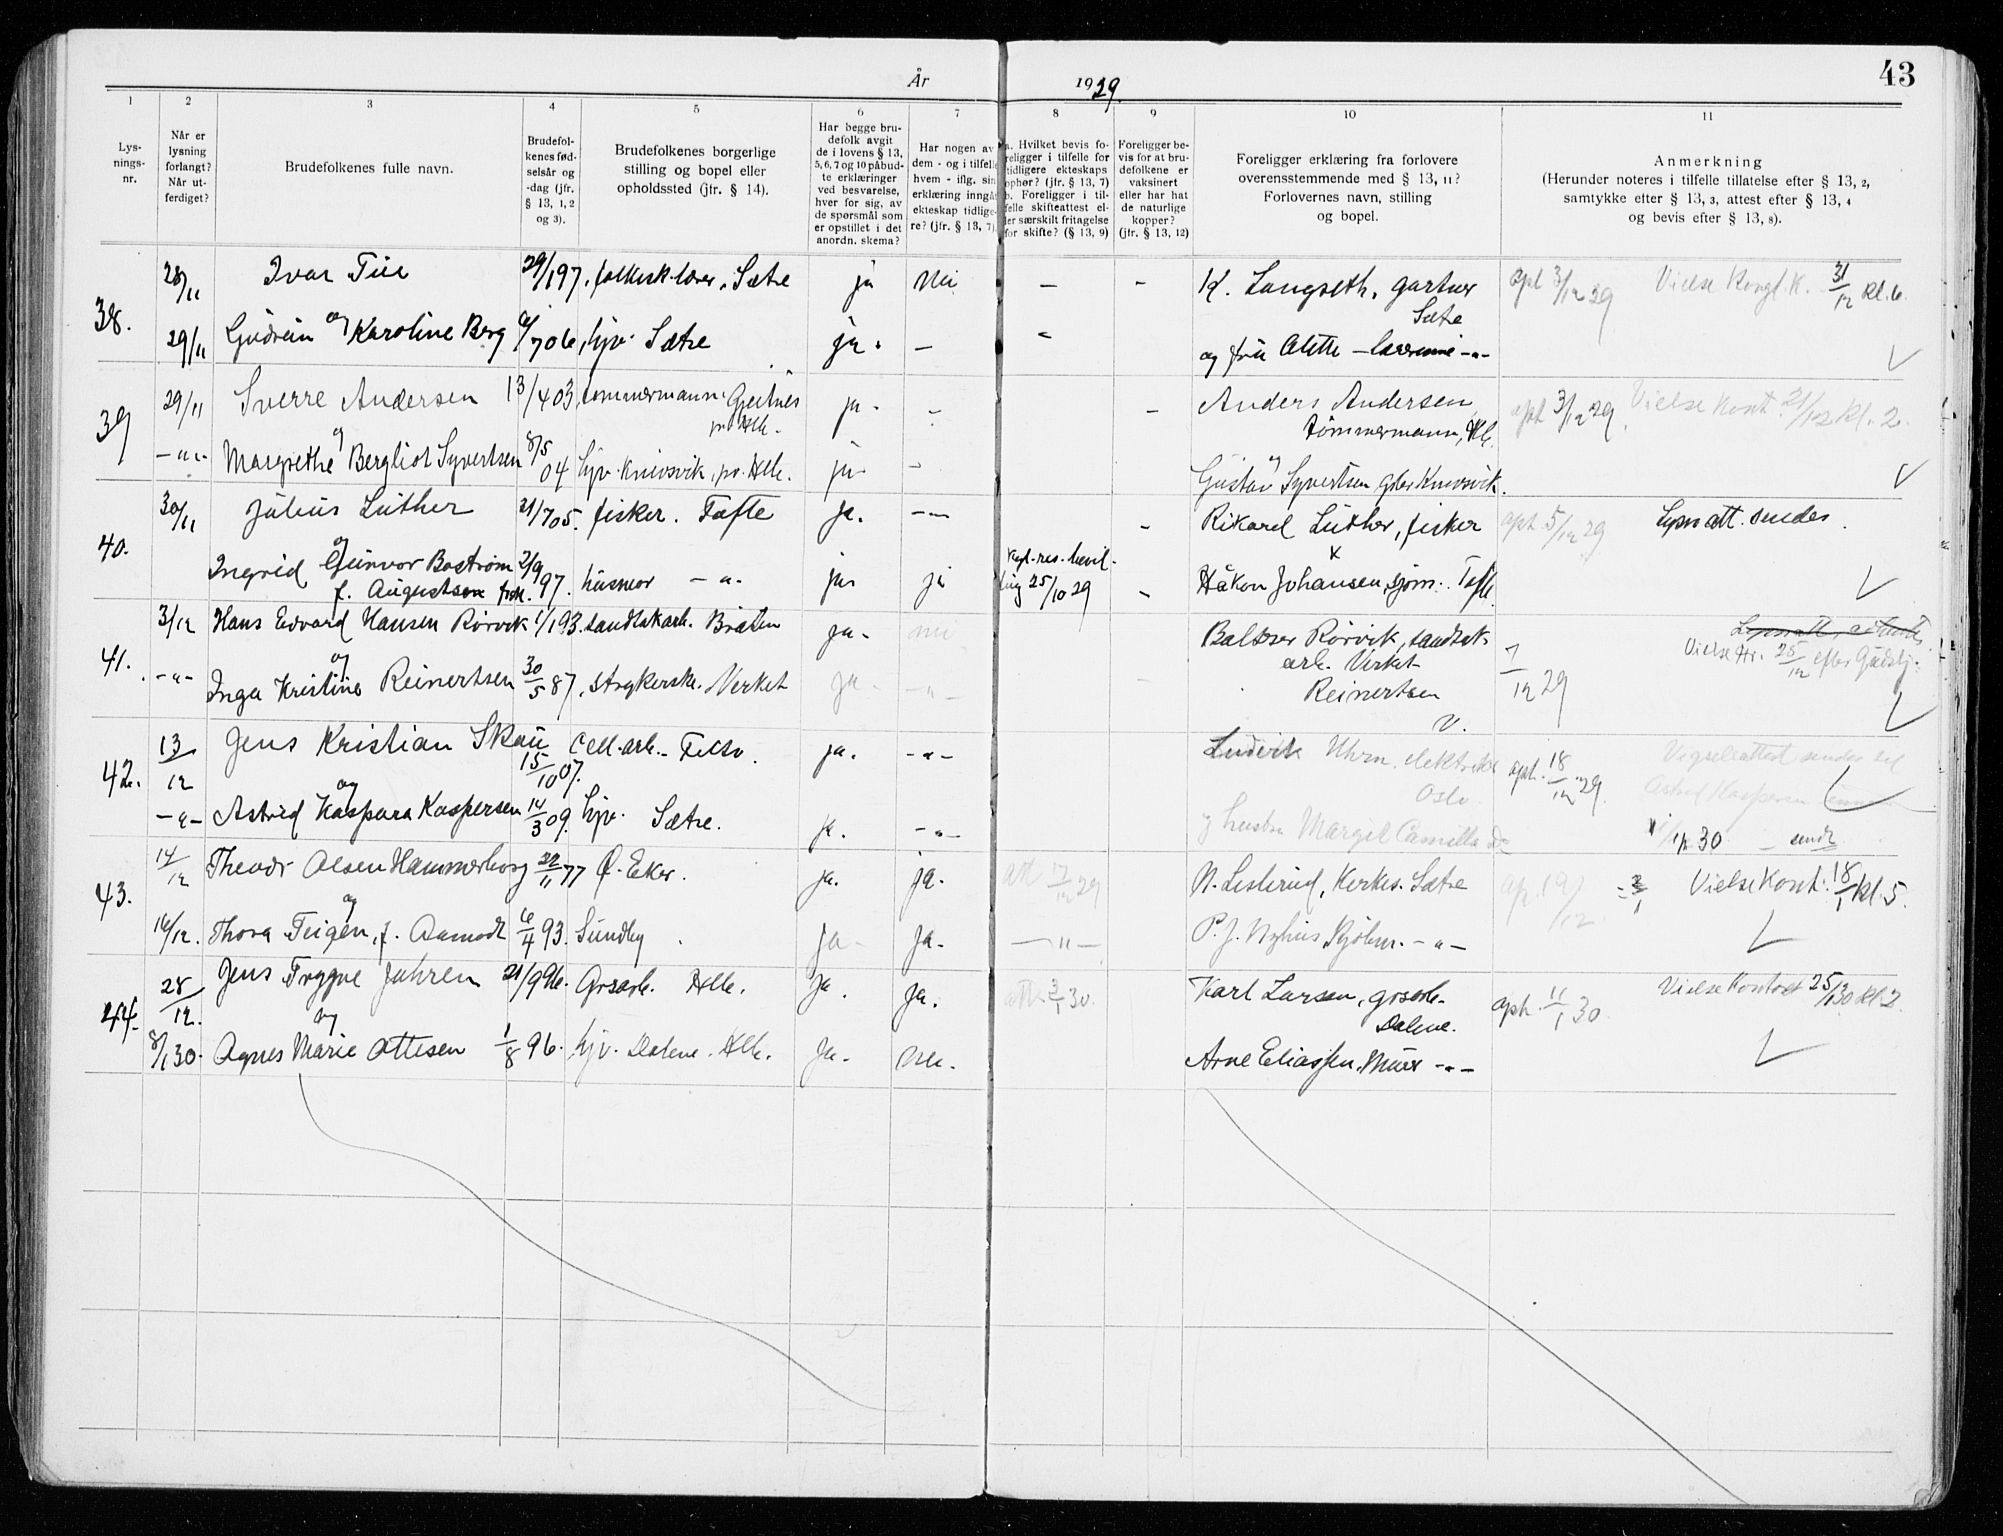 År 1929.
43
1 2 3 4 5 6 7 8 9 10 11
Lysnings-nr.
Når er lysning forlangt? Når utferdiget?
Brudefolkenes fulle navn.
Brudefolkenes fødselsår og -dag (jfr. § 13, 1, 2 og 3).
Brudefolkenes borgerlige stilling og bopel eller opholdssted (jfr. § 14).
Har begge brudefolk avgit de i lovens § 13, 5, 6, 7 og 10 påbudte erklæringer ved besvarelse, hver for sig, av de spørsmål som er opstillet i det anordn. skema?
Har nogen av dem - og i tilfelle hvem - iflg. sin erklæring inngått ekteskap tidligere? (jfr. § 13, 7)
a. Hvilket bevis foreligger i tilfelle for tidligere ekteskaps ophør? (jfr. § 13, 7) b. Foreligger i tilfelle skifteattest eller særskilt fritagelse for skifte? (§ 13, 9)
Foreligger bevis for at brudefolkene er vaksinert eller har hat de naturlige kopper? (jfr. § 13, 12)
Foreligger erklæring fra forlovere overensstemmende med § 13, 11? Forlovernes navn, stilling og bopel.
Anmerkning (Herunder noteres i tilfelle tillatelse efter § 13, 2, samtykke efter § 13, 3, attest efter § 13, 4 og bevis efter § 13, 8).
38. 28/11 Ivar Tue 29/1 97, folkesk.lærer, Sætre ja Nei — - K. Langseth, gartner Sætre opl 3/12 29 Vielse Kongl.K. 31/12 kl. 6.
og
29/11 Gudrun Karoline Berg 706, hjv. Sætre ja. — - og frue Alette —
39 29/11 Sverre Andersen 13/4 03, tømmermann, Gjeitnes pr Hle. ja. - - Anders Andersen, Tømmermann, Hle. opl 3/12 29. Vielse Kont. 21/12 kl. 2.
og
—"— Margrethe Bergliot Syvertsen 8/5 04 hjv. Knivsvik, pr. Hle. ja. - og Gustav Syvertsen, Knivsvik.
40. 30/11 Julius Luther 21/7 05. fisker. Tofte Ja. — - Rikard Luther, fisker opl. 5/12 29 Lysn att. sendes.
og
Ingrid Gunvor Bostrøm f. Augustsen 2/9 97. husmor —"— ja ja Kgl. res. bevilling 25/10 29 - Håkon Johansen, sjøm. Tofte.
41. 3/12 Hans Edvard Hansen Rørvik 1/1 93. sandtakarb. Bråten ja. nei Baltzer Rørvik, sandtak arb. Verket 7/12 29 Vielse Hr. 25/12 efter Gudstj.
og
—"— Inga Kristine Reinertsen 30/5 87, strykerske. Verket ja. —"— - Reinertsen V.
42. 13/12 Jens Kristian Skau 15/10 07. Cell.arb. - Filtv. ja. —"— Ludvik Uhrn, elektriker Oslo. opl. 18/12 29. Vigselattest sendes til
og
—"— Astrid Kaspara Kaspersen 14/3 09. hjv. Sætre. ja. —"— og hustru Margit Camilla Do Astrid Kaspersen 30 — sendt
43. 14/12 Theodr Olsen Hammerborg 22/11 77 Ø. Eker. ja. ja. att 17/12 29 N. Lesterud, Kerkes. Sætre op. 19/12 Vielse Kont. 18/1 kl. 5.
og
16/12. Thora Teigen, f. Aamodt 6/4 93. Sundby ja. Ja. —"— P. J. Nyhus —"—
44. 28/12. Jens Trygve Jahren 21/9 96. Grsarb. Hle. Ja. Ja. att. 3/1 30. Karl Larsen, grsarb. Dalene. oph. 11/1 30. Vielse Kontoret 25/1 30 kl 2.
og
8/1 30. Agnes Marie Ottesen 1/8 96. hjv. Dalene. Hle. Ja. Nei. Arne Eliassen, Murer —"—